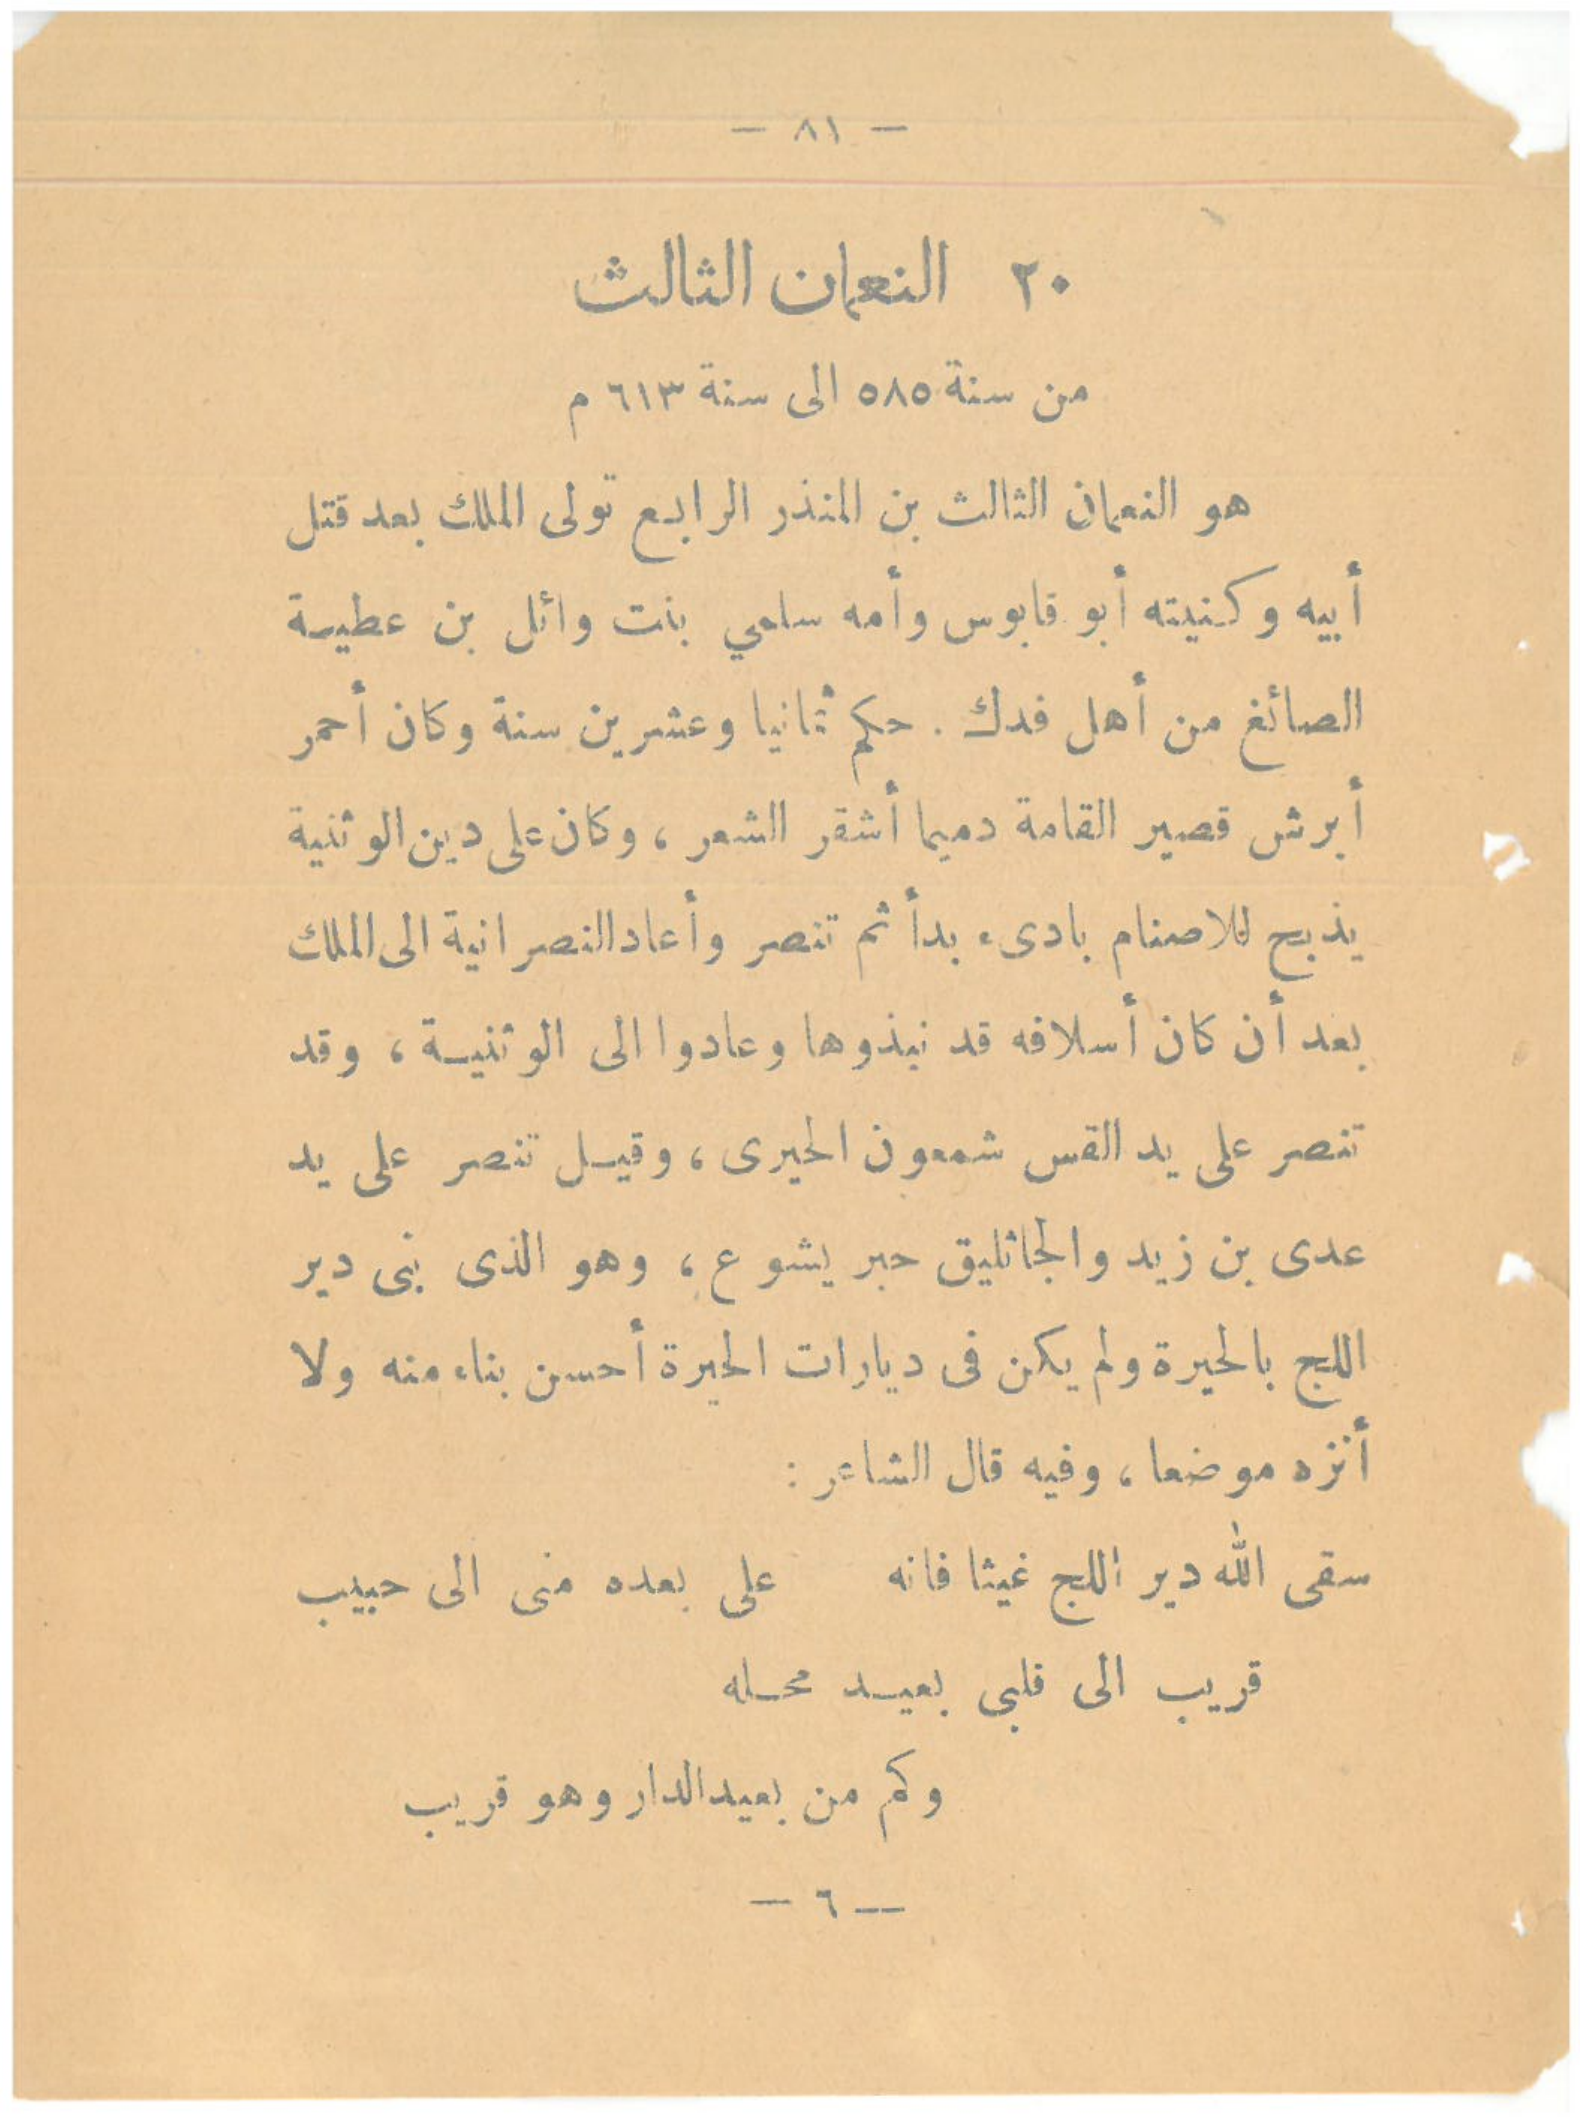 — ٨١ —
٢٠ النعمان الثالث
من سنة ٥٨٥ الى سنة ٦١٣ م
هو النعمان الثالث بن المنذر الرابع تولى الملك بعد قتل
أبيه وكنيته أبو قابوس وأمه سلمي بنت وائل بن عطية
الصائغ من أهل فدك . حكم ثمانيا وعشرين سنة وكان أحمر
أبرش قصير القامة دميما أشقر الشعر ، وكان على دين الوثنية
يذبح للاصنام بادىء بدأ ثم تنصر وأعاد النصرانية الى الملك
بعد أن كان أسلافه قد نبذوها وعادوا الى الوثنية ، وقد
تنصر على يد القس شمعون الحيرى ، وقيل تنصر على يد
عدى بن زيد والجاثليق حبر يشوع ، وهو الذى بنى دير
اللج بالحيرة ولم يكن فى ديارات الحيرة أحسن بناء منه ولا
أنزه موضعا ، وفيه قال الشاعر :
سقى الله دير اللج غيثا فانه على بعده منى الى حبيب
قريب الى قلبى بعيد محله
وكم من بعيد الدار وهو قريب
— ٦ —